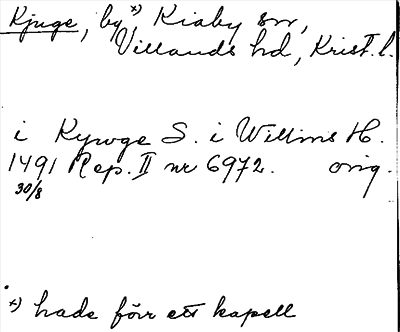 Kjuge, by *), Kiaby sn,
Villands hd, Krist. l.
i Kywge S. i Willins H.
1491 Rep. II nr 6972. orig.
30/8
*) hade förr ett kapell